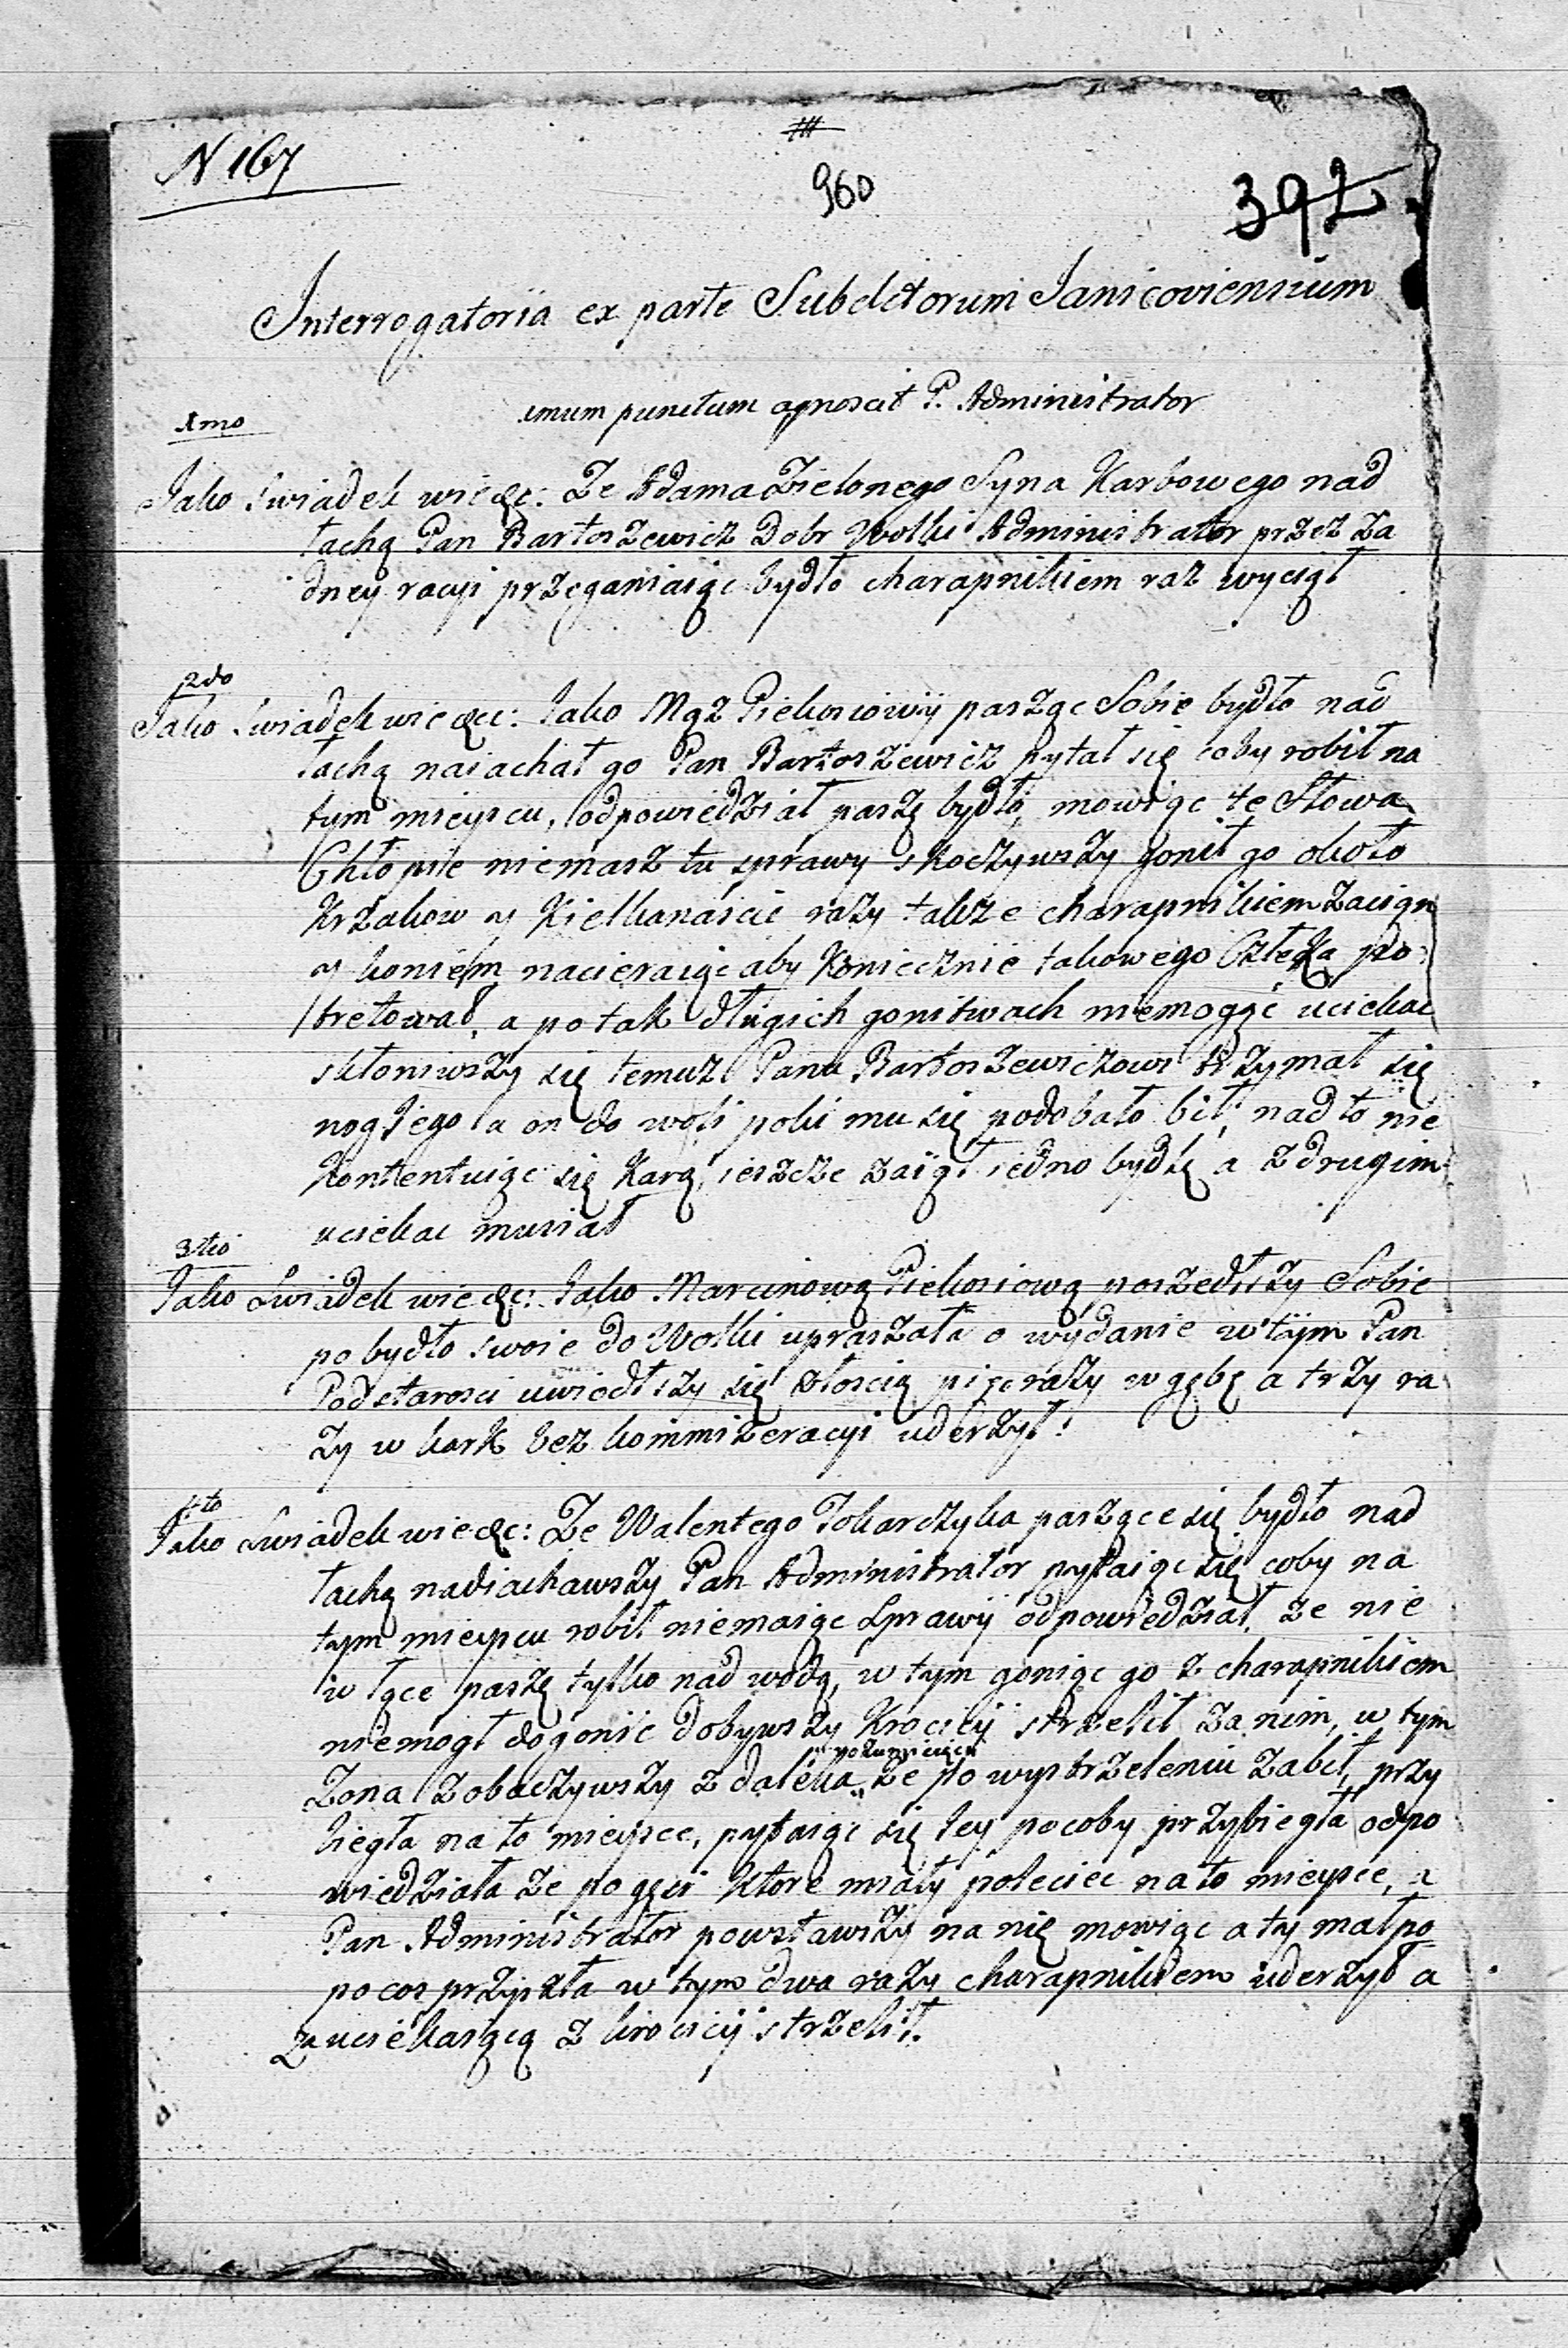 N 167
960
392
Interrogatoria ex parte Subditorum Janicoviensium
1mum punctum agnoscit P. Administrator
1mo
Jako Swiadek wie &c: Ze Adama Zielonego Syna Karbowego nad
łachą Pan Bartoszewicz Dobr Wolki Administrator przez za
dney racyi przeganiaiąc bydło charapnikiem raz wyciął
2do
Jako Swiadek wie &c: Jako Mąz Piekosiowÿ pasząc Sobie bydło nad
łachą naiachał go Pan Bartoszewicz pytał się coby robił na
tym mieyscu, odpowiedział paszę bydło, mowiąc te Słowa
Chłopie niemasz tu sprawy skoczywszy gonił go około
Krzakow y Kielkanascie razy także charapnikiem zaciął
y koniem nacieraiąc aby Koniecznie takowego Człeka po
tretował, a po tak długich gonitwach niemogąc uciekac
skłoniwszy się temuz Panu Bartoszewiczowi trzymał się
nog Jego a on do woli poki mu się podobało bił, nad to nie
kontentuiąc się Karą, ieszcze zaiął iedno bydlę a z drugim
uciekac musiał
3tio
Jako Swiadek wie &c: Jako Marcinową Piekosiową poszedłszy Sobie
po bydło swoie do Wolki upraszała o wydanie w tÿm Pan
Podstarosci uwiodłszy się złoscią pięc razy w gębę a trzy ra
zy w kark bez kommizeracyi uderzył.
4to
Jako Swiadek wie &c: Ze Walentego Tokarczyka paszące się bydło nad
łachą nadiachawszy Pan Administrator pytaiąc się coby na
tym mieyscu robił niemaiąc Sprawÿ odpowiedział, ze nie
w łące paszę tylko nad wodą, w tym goniąc go z charapnikiem
niemogł dogonic dobywszy Krocicÿ strzelił za nim, w tym
rozumieiąca
Zona zobaczywszy z daleka ze po wystrzeleniu zabił, przy
biegła na to mieysce, pytaiąc się Iey pocoby przybiegła odpo
wiedziała ze po gęsi Ktore miały poleciec na to mieysce, a
Pan Administrator powstawszy na nię mowiąc a ty małpo
pocos przyszła w tym dwa razy charapnikiem uderzył a
za uciekaiącą z krocicÿ strzelił.